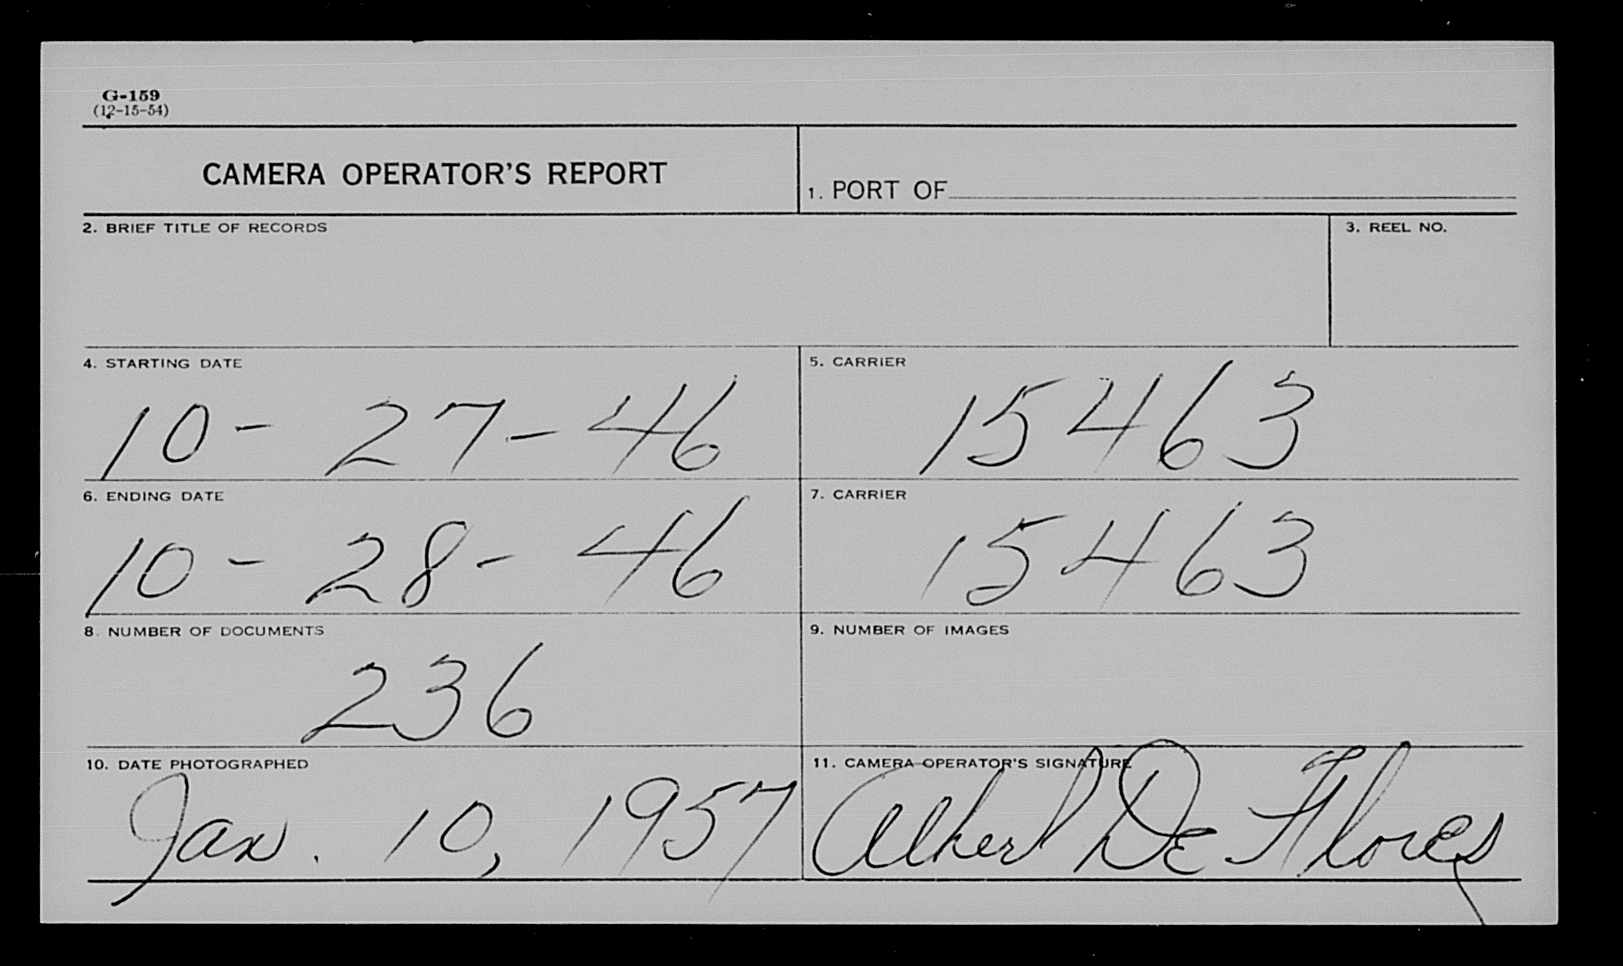 G-159
(12-15-54)
CAMERA OPERATOR'S REPORT
1. PORT OF
2. BRIEF TITLE OF RECORDS
3. REEL NO.
4. STARTING DATE
10 - 27 - 46
5. CARRIER
15463
6. ENDING DATE
10 - 28 - 46
7. CARRIER
15463
8. NUMBER OF DOCUMENTS
236
9. NUMBER OF IMAGES
10. DATE PHOTOGRAPHED
Jan. 10, 1957
11. CAMERA OPERATOR'S SIGNATURE
Albert De Flores